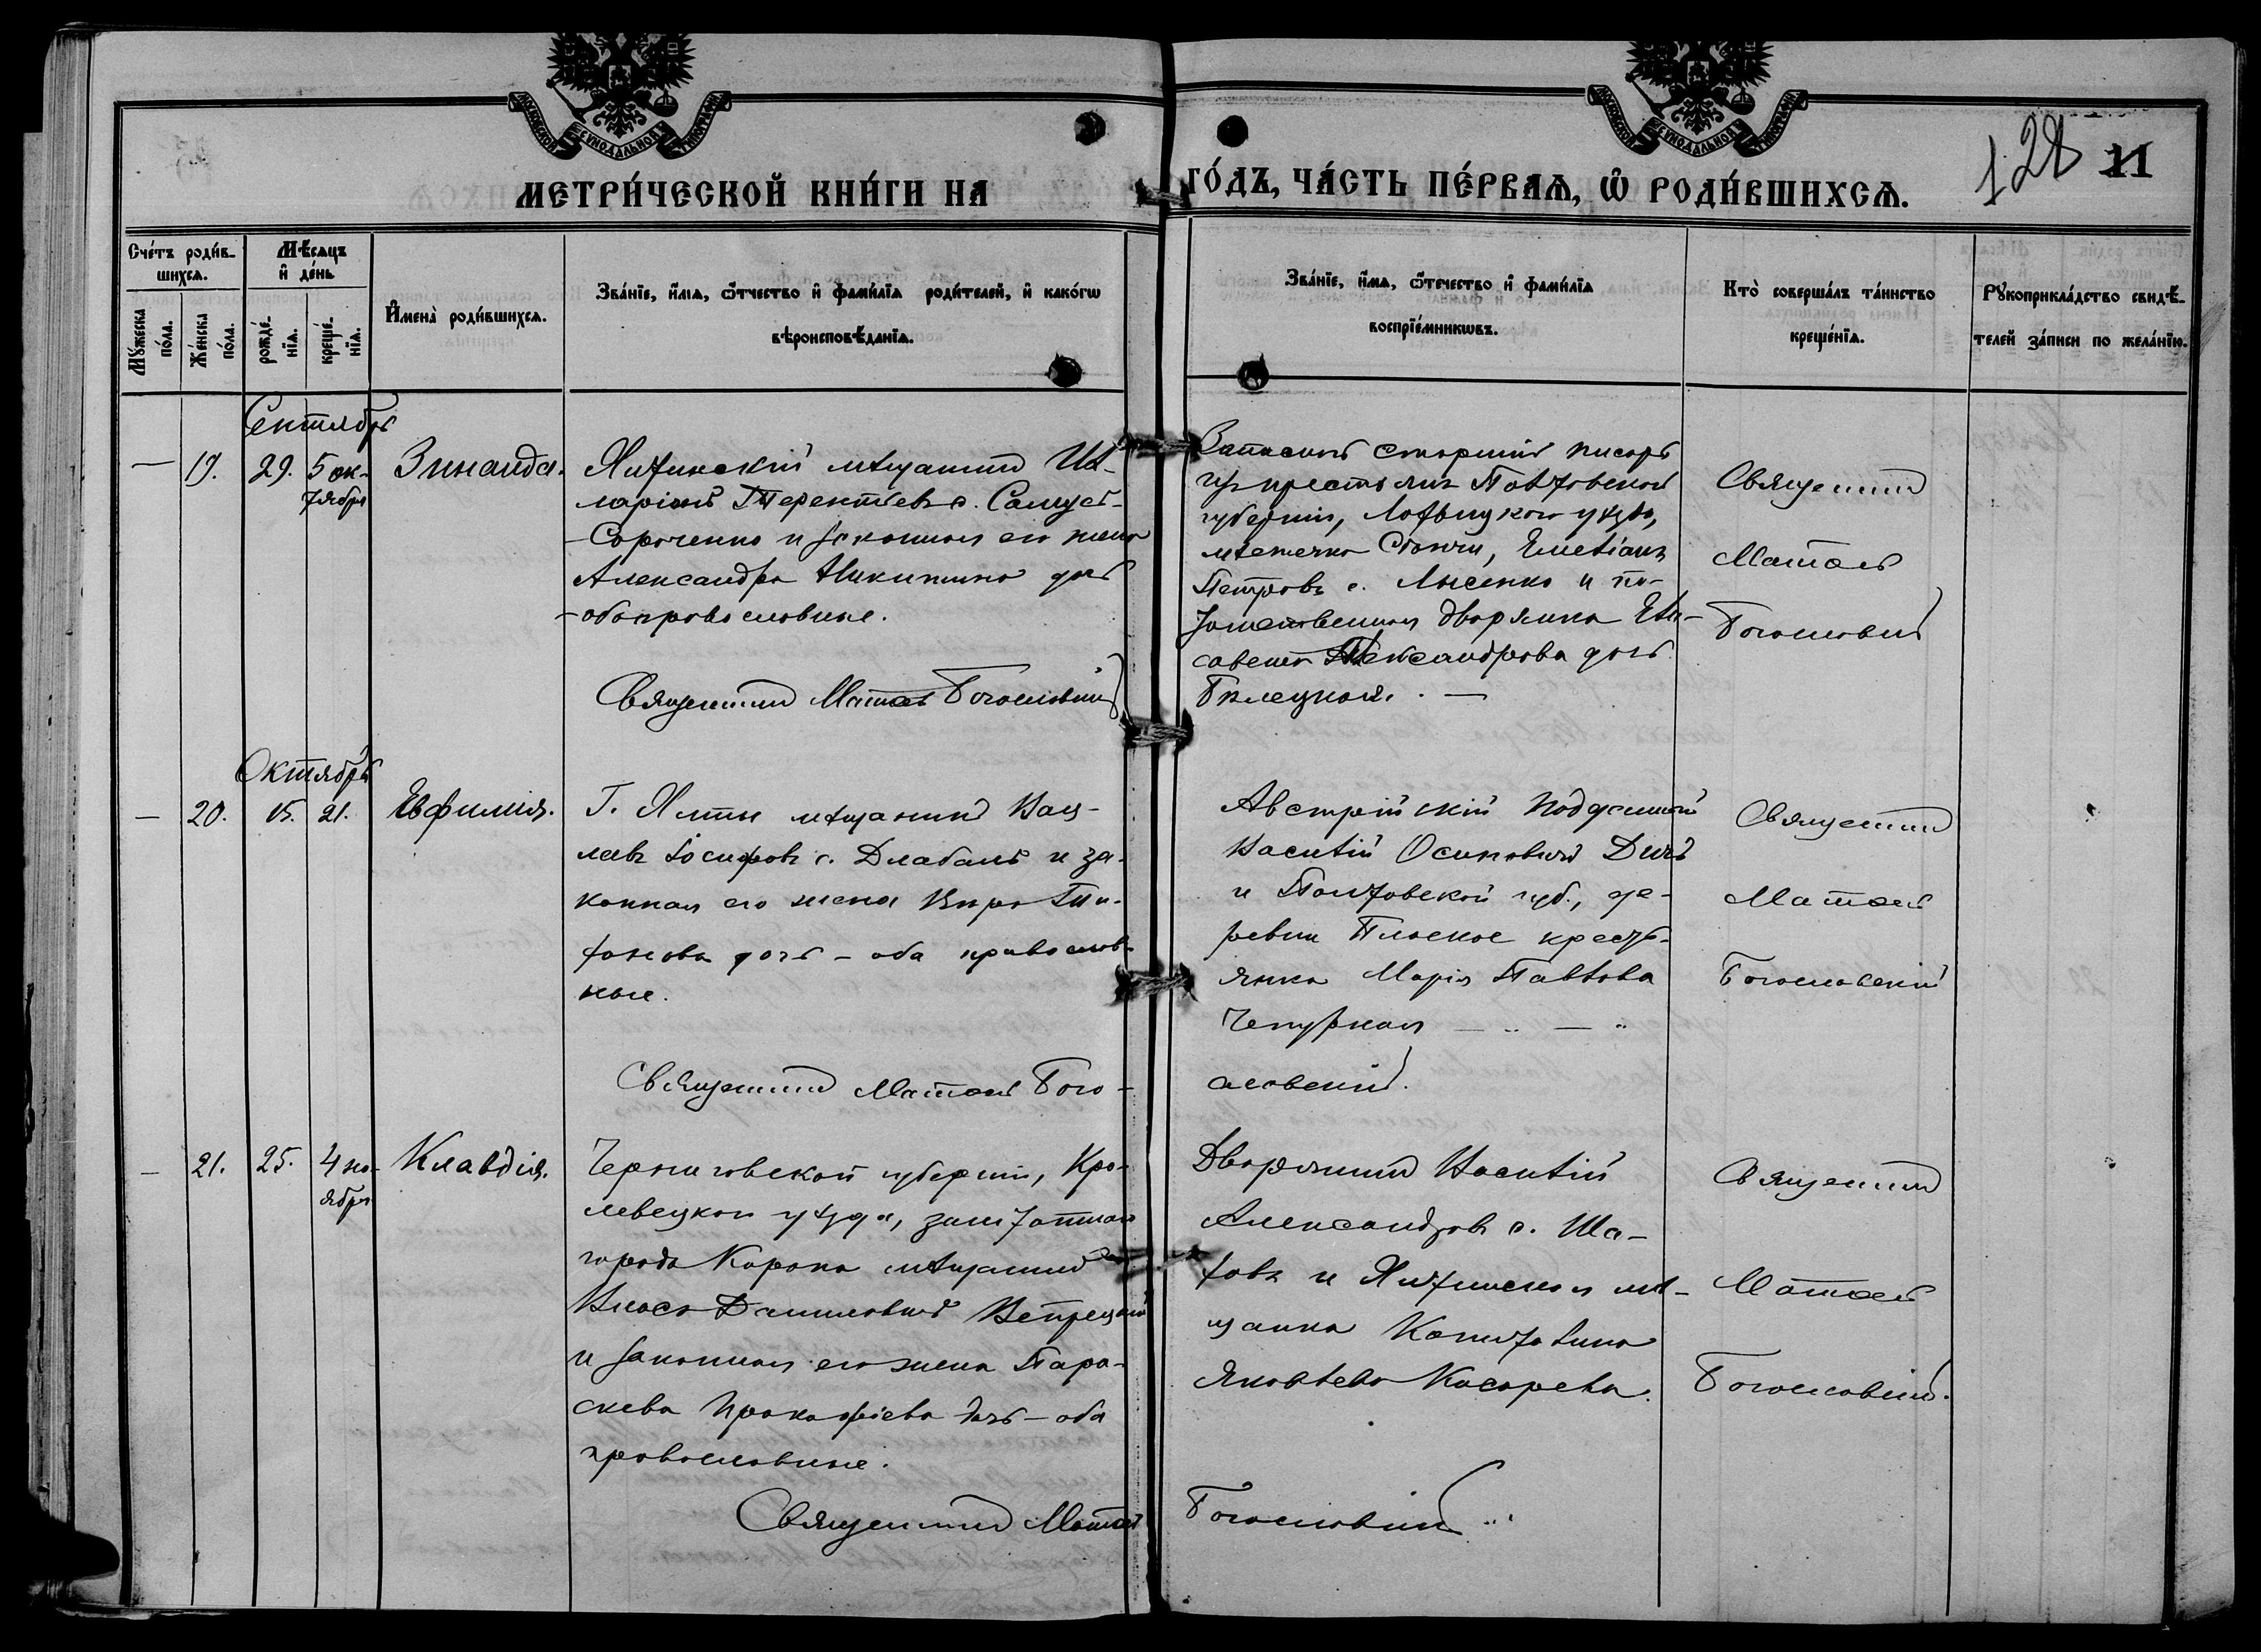 МОСКОВСКОЙ СѴНОДАЛЬНОЙ ТИПОГРАФІИ
МОСКОВСКОЙ СѴНОДАЛЬНОЙ ТИПОГРАФІИ
128 11
МЕТРИ́ЧЕСКОЙ КНИ́ГИ НА ГО́ДЪ, ЧА́СТЬ ПЕ́РВАѦ, Ѡ҆ РОДИ́ВШИХСѦ.
Сче́тъ роди́в-
шихсѧ.
Мꙋ́жеска
по́ла.
Же́нска
по́ла.
Мѣ́сѧцъ
и҆ де́нь
рожде́-
нїѧ.
креще́-
нїѧ.
И҆мена̀ роди́вшихсѧ.
Зва́нїе, и҆́мѧ, ѻ҆́тчество и҆ фами́лїѧ роди́телей, и҆ како́гѡ
вѣроисповѣ́данїѧ.
Зва́нїе, и҆́мѧ, ѻ҆́течество и҆ фами́лїѧ
воспрїе́мникѡвъ.
Кто̀ соверша́лъ та́инство
креще́нїѧ.
Рꙋкоприкла́дство свидѣ́-
телей за́писи по жела́нїю.
Сентябрь
— 19. 29. 5 ок-
тября
Зинаида.
Ялтинскій мѣщанинъ Ил-
ларіонъ Терентьевъ с. Самусь-
-Сороченко и законная его жена
Александра Никитина дочь
-оба православные.
Священникъ Матѳей Богословскій
Запасный старшій писарь
изъ крестьянъ Полтовской
губерніи, Лохвицкого уѣзда,
мѣстечка Сѣнчи, Емеліанъ
Петровъ с. Лысенко и по-
томственная дворянка Ели-
савета Александрова дочь
Билецкая. —
Священникъ
Матѳей
Богословскій
Октябрь
— 20. 15. 21.
Евфимія.
Г. Ялты мѣщанинъ Вац-
лавъ Іосифовъ с. Длабалъ и за-
конная его жена Вѣра
дочь - оба православ-
ные.
Священникъ Матѳей Бого-
словскій.
Австрійскій подданный
Василій Осиповичъ
и Полтовской губ., де-
ревни Плоское кресть-
янка Марія Павлова
Чепурная — " — "
Священникъ
Матѳей
Богословскій
— 21. 25. 4 но-
ября
Клавдія.
Черниговской губерніи, Кро-
левецкого уѣзда, заштатнаго
города Коропа мѣщанинъ
Власъ Даниловичъ Вепрецкій
и законная его жена Пара-
скева Прокофіева дочь - оба
православные.
Священникъ Матѳей
Богословскій
Дворянинъ Василій
Александровъ с. Ша-
товъ и Ялтинская мѣ-
щанка Капитолина
Яковлева Косарева.
Священникъ
Матѳей
Богословскій.